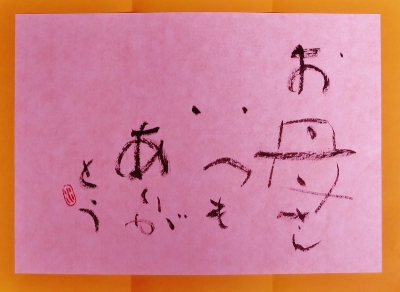 お母さん
いつも
ありが
とう